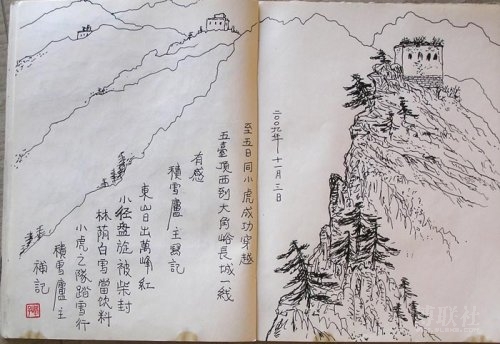 二〇〇九年十一月三日
至五日同小虎成功穿越
五臺頂西到大角峪長城一线
有感
積雪廬主寫記
東山日出萬峰紅
小径盘旋被柴封
林荫白雪當飲料
小虎之隊踏雪行
積雪廬主
補記